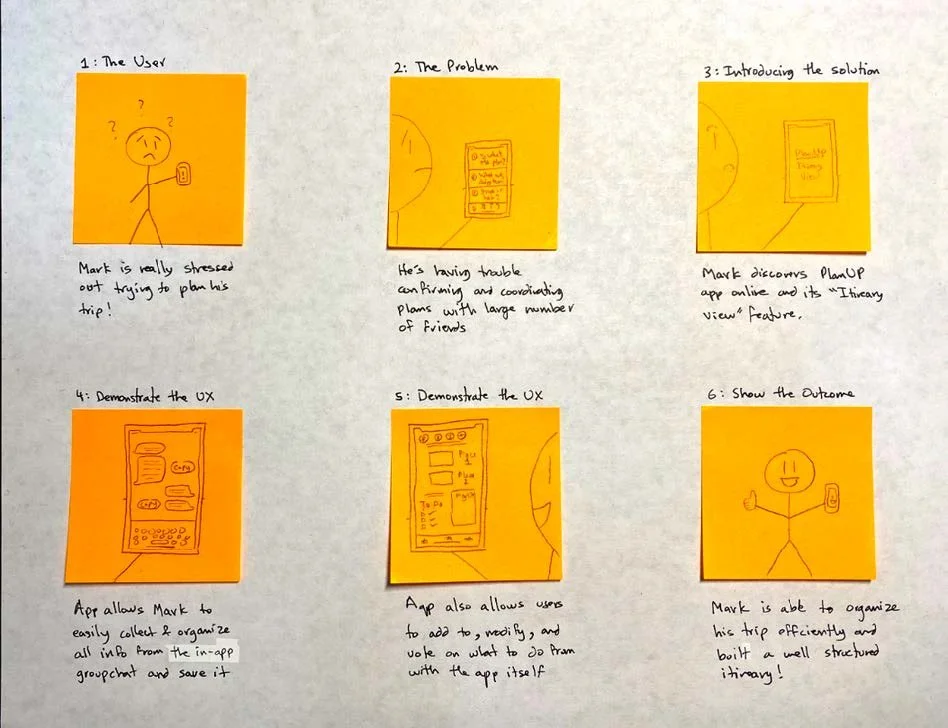 1: The User
?
?
?
Mark is really stressed
out trying to plan his
trip!
2: The Problem
is what
the plan?
He's having trouble
confirming and coordinating
plans with large number
of friends
3: Introducing the solution
PlanUp
Itinerary
View
Mark discovers PlanUP
app online and its "Itineary
view" feature.
4: Demonstrate the UX
Copy
Copy
App allows Mark to
easily collect & organize
all info from the in-app
groupchat and save it
5: Demonstrate the UX
Plan
1
Plan
2
To Do
App also allows users
to add to, modify, and
vote on what to do from
with the app itself
6: Show the Outcome
Mark is able to organize
his trip efficiently and
built a well structured
itineary!